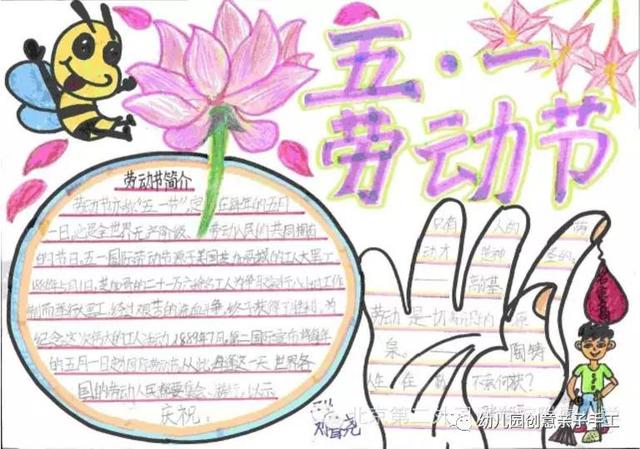 五·一
劳动节
劳动节简介
劳动节亦称"五一节",定在每年的五月
一日,它是全世界无产阶级、劳动人民的共同拥有
的节日。五一国际劳动节源于美国芝加哥城的工人大罢工
1886年5月1日,芝加哥的二十一万六千余名工人为争取实行八小时工作
制而举行大罢工,经过艰苦的流血斗争,终于获得了胜利。为
纪念这次伟大的工人运动,1889年7月,第二国际宣布将每年
的五月一日定为国际劳动节。从此,每逢这一天 世界各
国的劳动人民都要集会、游行,以示
庆祝。
只有 人的
动才 是神
圣的。
——高尔基
劳动是一切 的 源
泉。 ——陶铸
人生在 不 何获?
北京第二
幼儿园创意亲子手工